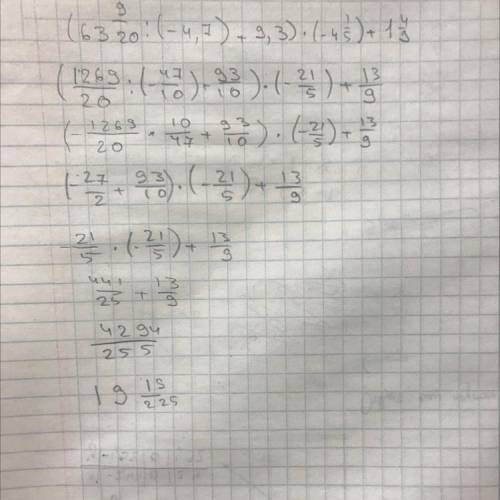 (63 9/20 : (-4,7) + 9,3) · (-4 1/5) + 1 4/9
(1269/20 : (-47/10) + 93/10) · (-21/5) + 13/9
(-1269/20 · 10/47 + 93/10) · (-21/5) + 13/9
(-27/2 + 93/10) · (-21/5) + 13/9
-21/5 · (-21/5) + 13/9
441/25 + 13/9
4294/255
19 19/225